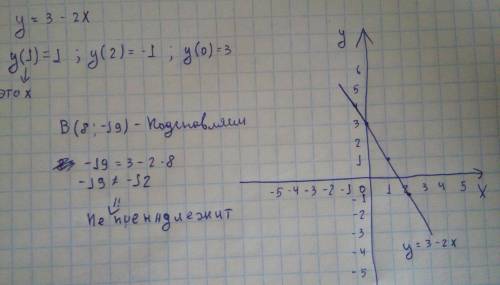 y = 3 - 2x
y(1) = 1 ; y(2) = -1 ; y(0) = 3
это x
B(8; -19) - Подставляем
-19 = 3 - 2 · 8
-19 ≠ -12
Не пренадлежит
y
6
5
4
3
2
1
-5 -4 -3 -2 -1 0 1 2 3 4 5 X
-1
-2
-3
-4
-5
y = 3 - 2x